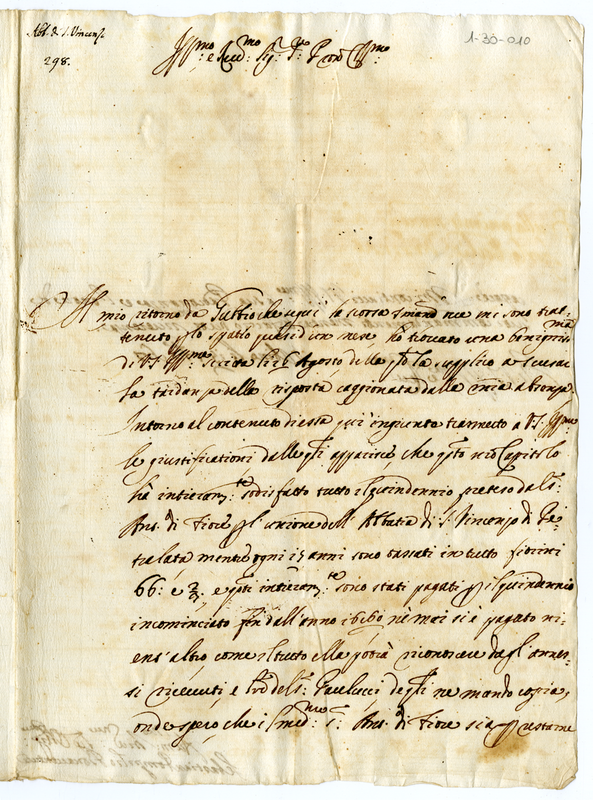 Abb. di S. Vincenz.
298.
1-30-010
Ill.mo e Rev.mo Sig.r P.ron Col.mo
Al mio ritorno da Gubbio che seguì la scorsa
mi sono trat-
tenuto p lo spatio quasi d'un mese ho trovato una benignis.ma
di V.S. Ill.ma scritta li 26 Agosto della q.le la supplico a scusar
la tardanza della risposta caggionata dalla mia absenza
Intorno al contenuto di essa qui ingiunto trasmetto a V.S. Ill.ma
le giustificationi dalle q.li apparisce, che q.to mio Capitolo
hà intieram.te sodisfatto tutto il quindennio preteso dal S.
Ant. di Fiore p l'unione dell'Abbatia di S. Vincenzo di Pe-
tralata mentre ogni 15 anni sono tassati in tutto fiorini
66: e 2/3 e q.sti intieram.te sono stati pagati p il quindennio
incominciato fin dall'anno 1660 nè mai si è pagato ni-
ent'altro come il tutto ella potrà riconoscere dagl'annes-
si ricevuti, e del S. Paulucci de q.li ne mando copia,
onde spero che il med.mo S. Ant. di Fiore sia p restarne